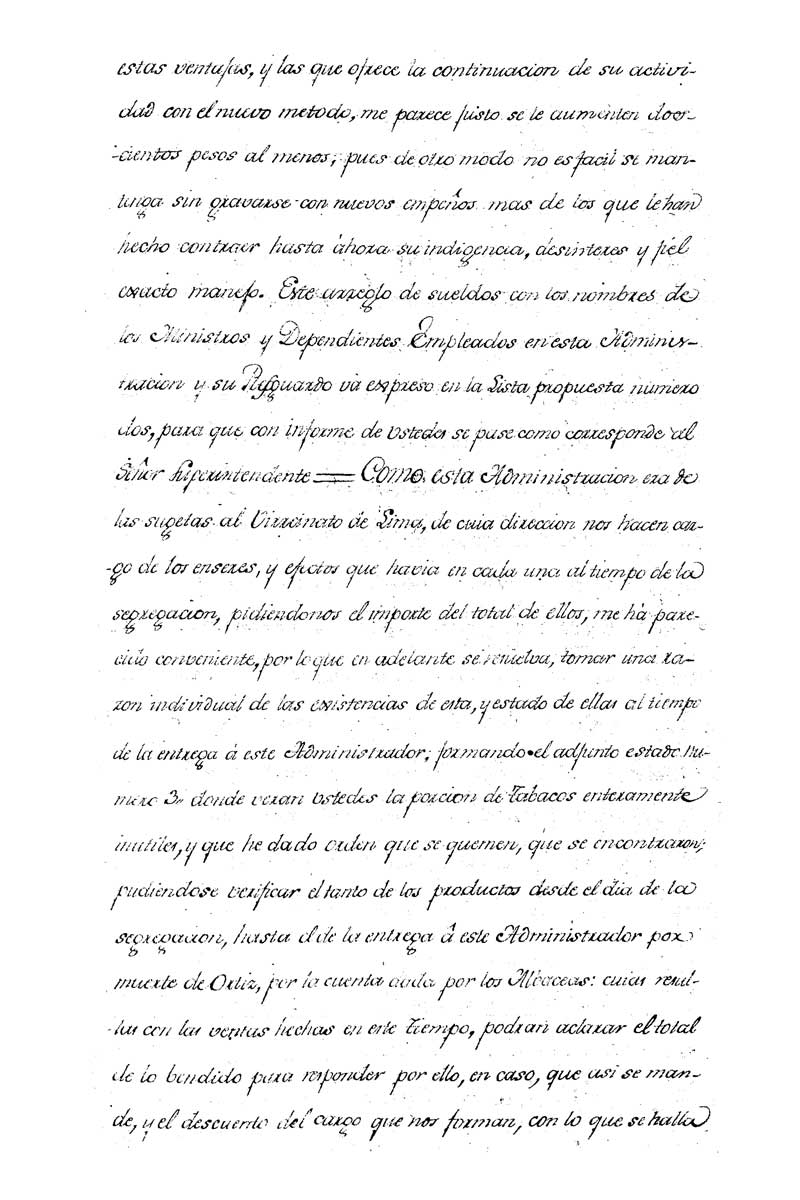 estas ventajas, y las que ofrece la continuacion de su activi-
dad con el nuevo metodo, me parece justo se le aumenten dos-
-cientos pesos al menos; pues de otro modo no es facil se man-
tenga sin gravarse con nuevos empeños mas de los que le han
hecho contraer hasta ahora su indigencia, desinteres y fiel
exacto manejo. Este arreglo de sueldos con los nombres de
los Ministros y Dependientes Empleados en esta Adminis-
tracion y su Resguardo vá expreso en la Lista propuesta numero
dos, para que con informe de ustedes se pase como corresponde al
Señor Superintendente == Como esta Administracion era de
las sugetas al Virreinato de Lima, de cuia direccion nos hacen car-
-go de los enseres, y efectos que havia en cada una al tiempo de la
segregacion, pidiendonos el importe del total de ellos, me há pare-
cido conveniente, por lo que en adelante se resuelva, tomar una ra-
zon individual de las existencias de esta, y estado de ellas al tiempo
de la entrega á este Administrador; formando el adjunto estado nu-
mero 3,, donde veran ustedes la porcion de tabacos enteramente
inutiles, y que he dado orden que se quemen, que se encontraron;
pudiendose verificar el tanto de los productos desde el dia de la
segregacion, hasta el de la entrega á este Administrador por
muerte de Ortiz, por la cuenta dada por los Albaceas: cuias resul-
-tas con las ventas hechas en este tiempo, podran aclarar el total
de lo bendido para responder por ello, en caso, que asi se man-
de, y el descuento del cargo que nos forman, con lo que se halla